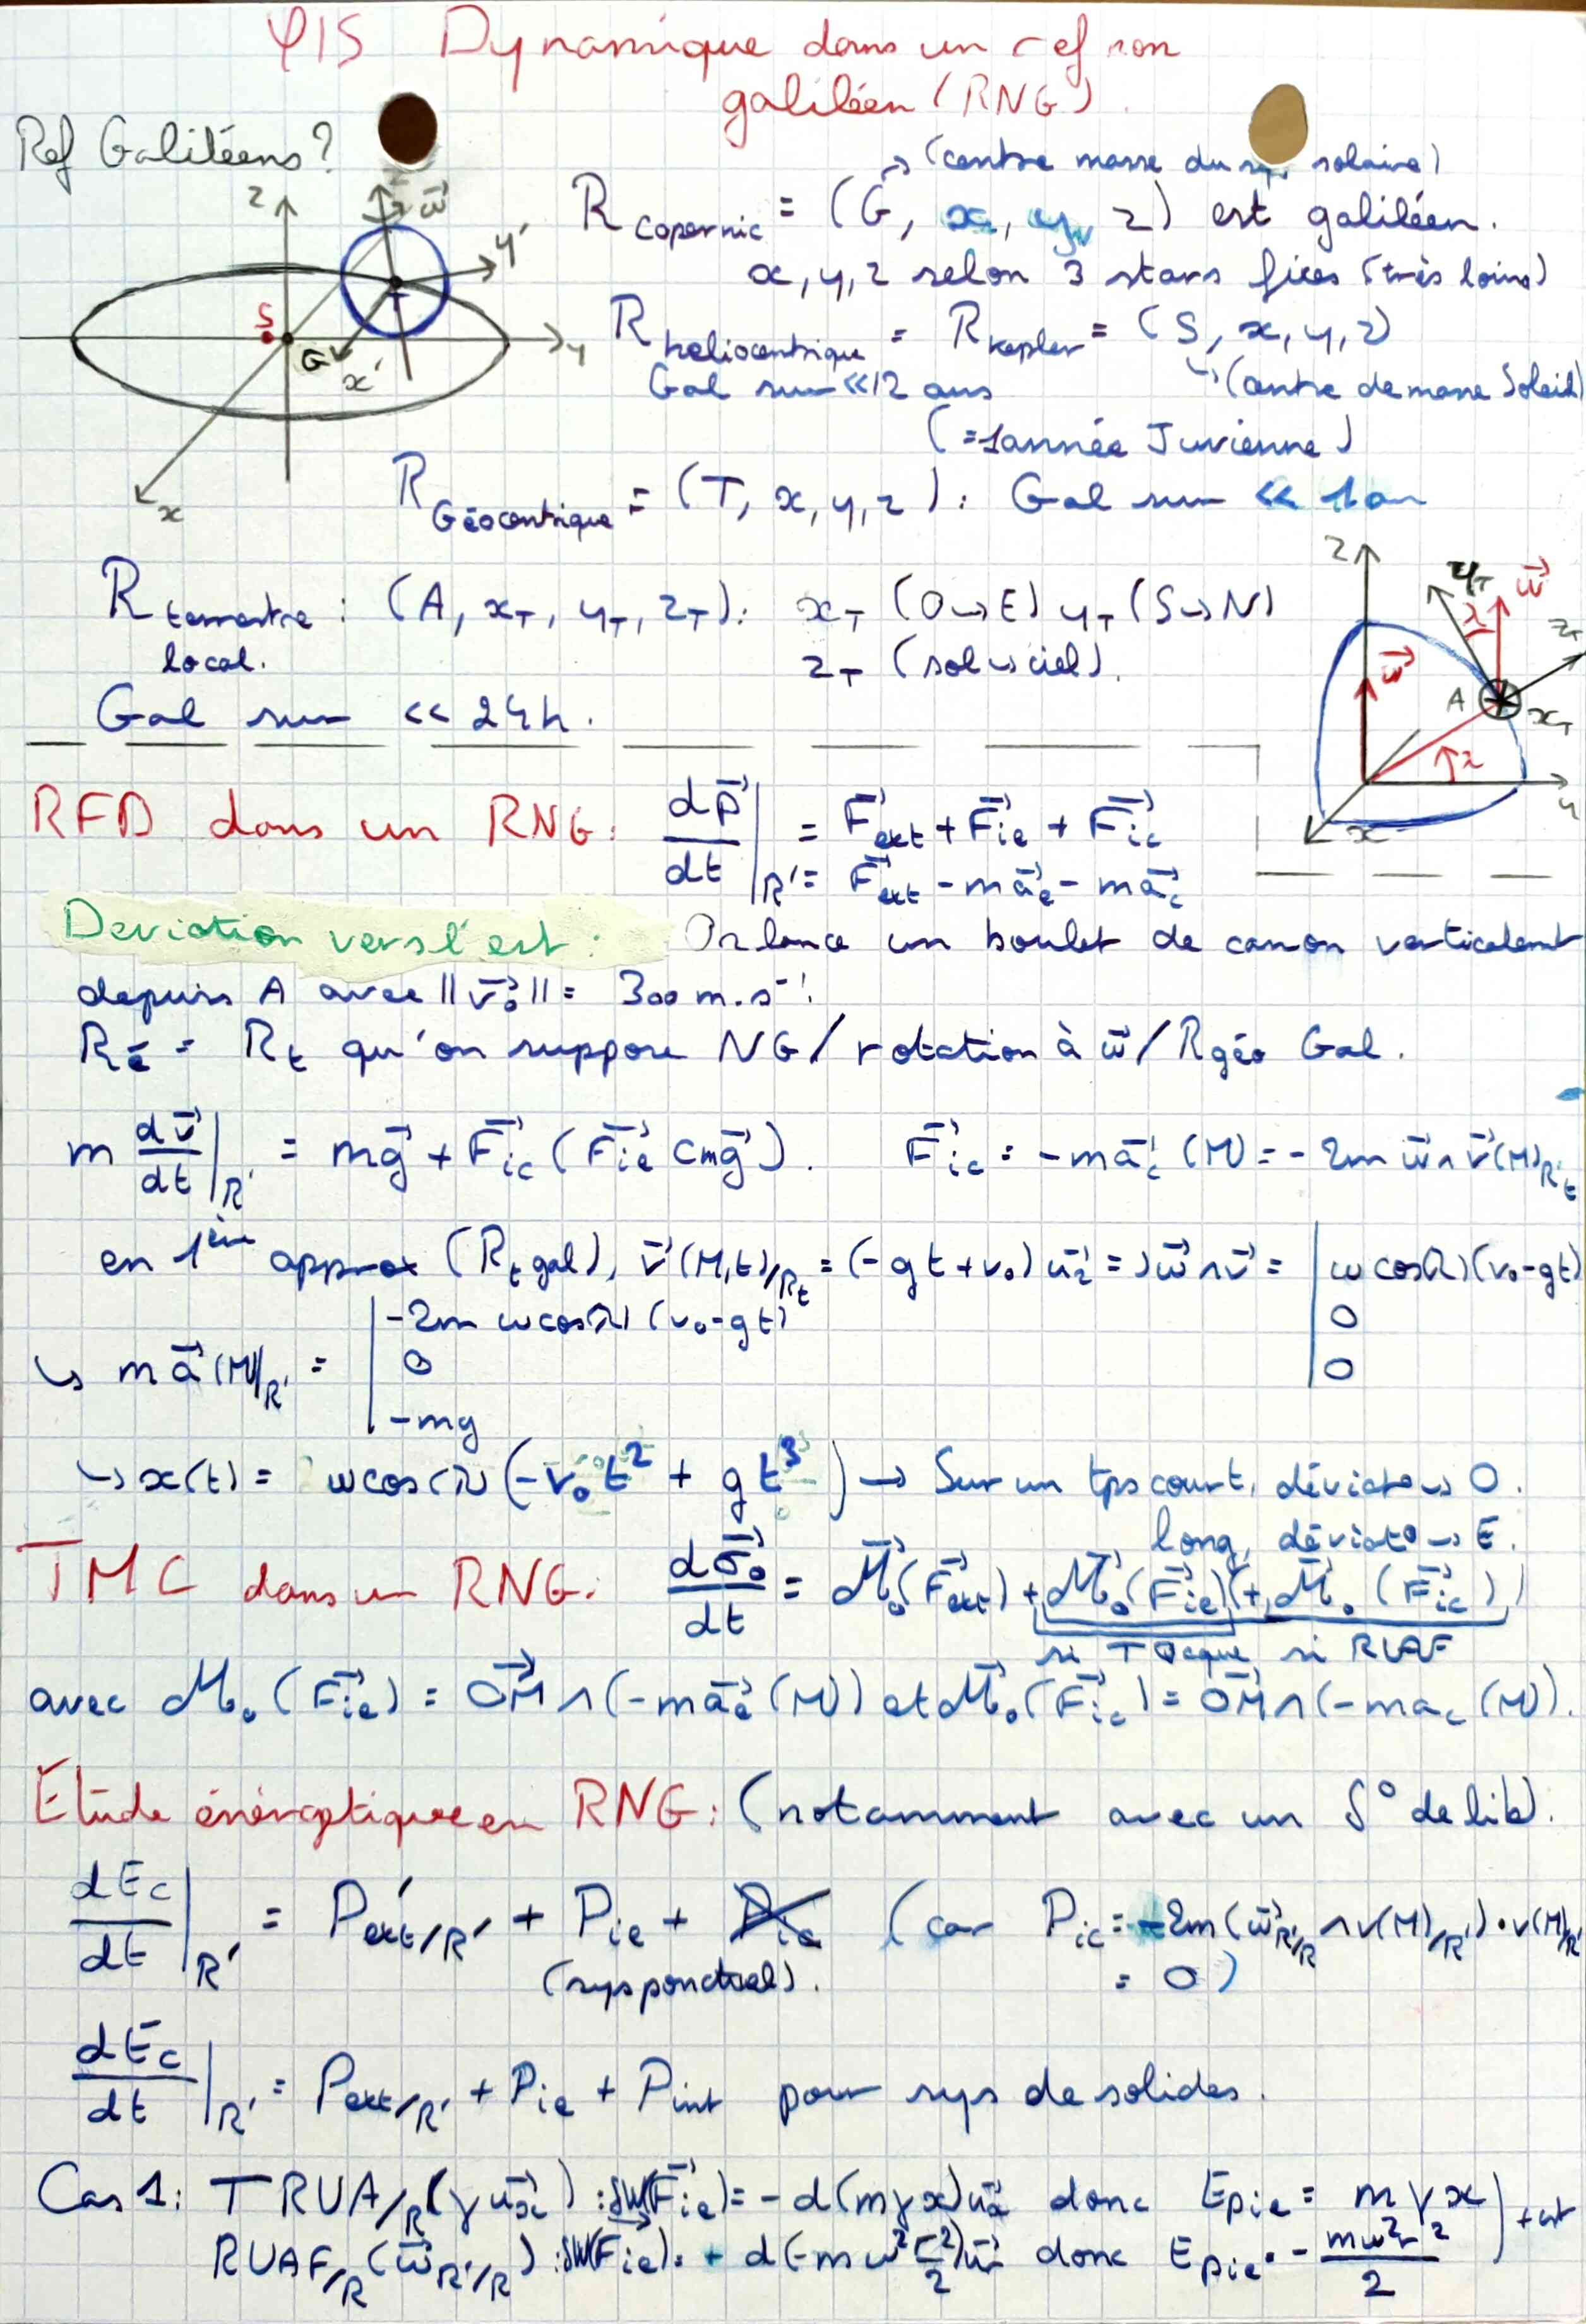 φ15 Dynamique dans un ref non
galiléen (RNG).
Ref Galiléens ?
→ (centre masse du sys solaire)
R Copernic = (G, x, y, z) est galiléen.
x, y, z selon 3 stars fixes (très loins)
R héliocentrique = R Kepler = (S, x, y, z)
Gal sur << 12 ans ↳ (centre de masse Soleil)
(= 1 année Juvienne)
R Géocentrique = (T, x, y, z) : Gal sur << 1 an
z ω⃗ y' S T G x' y x
R terrestre local. : (A, x_T, y_T, z_T) : x_T (O→E) y_T (S→N)
z_T (sol→ciel).
Gal sur << 24h.
z y_T ω⃗ λ z_T ω⃗ A x_T λ y x
RFD dans un RNG : dp⃗/dt |R' = F⃗ext + F⃗ie + F⃗ic
= F⃗ext - ma⃗e - ma⃗c
Deviation vers l'est : On lance un boulet de canon verticalement
depuis A avec ||v⃗o|| = 300 m.s⁻¹.
Ré = Rt qu'on suppose NG / rotation à ω⃗ / Rgéo Gal.
m dv⃗/dt |R' = mg⃗ + F⃗ic (F⃗ie ⊂ mg⃗). F⃗ic = -ma⃗c (M) = -2m ω⃗ ∧ v⃗(M)R't
en 1ère approx (Rt gal), v⃗(M,t)/Rt = (-gt+v₀) u⃗z => ω⃗∧v⃗ = | ω cos(λ)(v₀-gt)
0
0
↳ m a⃗(M)/R' = | -2m ω cos(λ) (v₀-gt)
0
-mg
↳ x(t) = ω cos(λ) (-v₀t² + g t³/3) → Sur un tps court, déviat° → O.
long, déviat° → E.
TMC dans un RNG : dσ⃗o/dt = M⃗o(F⃗ext) + M⃗o(F⃗ie) (+ M⃗o(F⃗ic))
si T si RUAF
avec Mo(F⃗ie) = OM⃗ ∧ (-ma⃗e (M)) et M⃗o(F⃗ic) = OM⃗ ∧ (-mac (M)).
Etude énérgétique en RNG : (notamment avec un δ° de lib).
dEc/dt |R' = Pext/R' + Pie + Pic (car Pic = -2m (ω⃗R'/R ∧ v(M)/R') • v(M)/R'
(sys ponctuel). = 0)
dEc/dt |R' = Pext/R' + Pie + Pint pour sys de solides.
Cas 1 : TRUA/R (γ u⃗x) : δW(F⃗ie) = -d(mγx)u⃗x donc Epie = mγx
RUAF/R (ω⃗R'/R) : δW(F⃗ie) = + d(-mω²r²/2)u⃗r donc Epie = -mω²r²/2 ) + cst